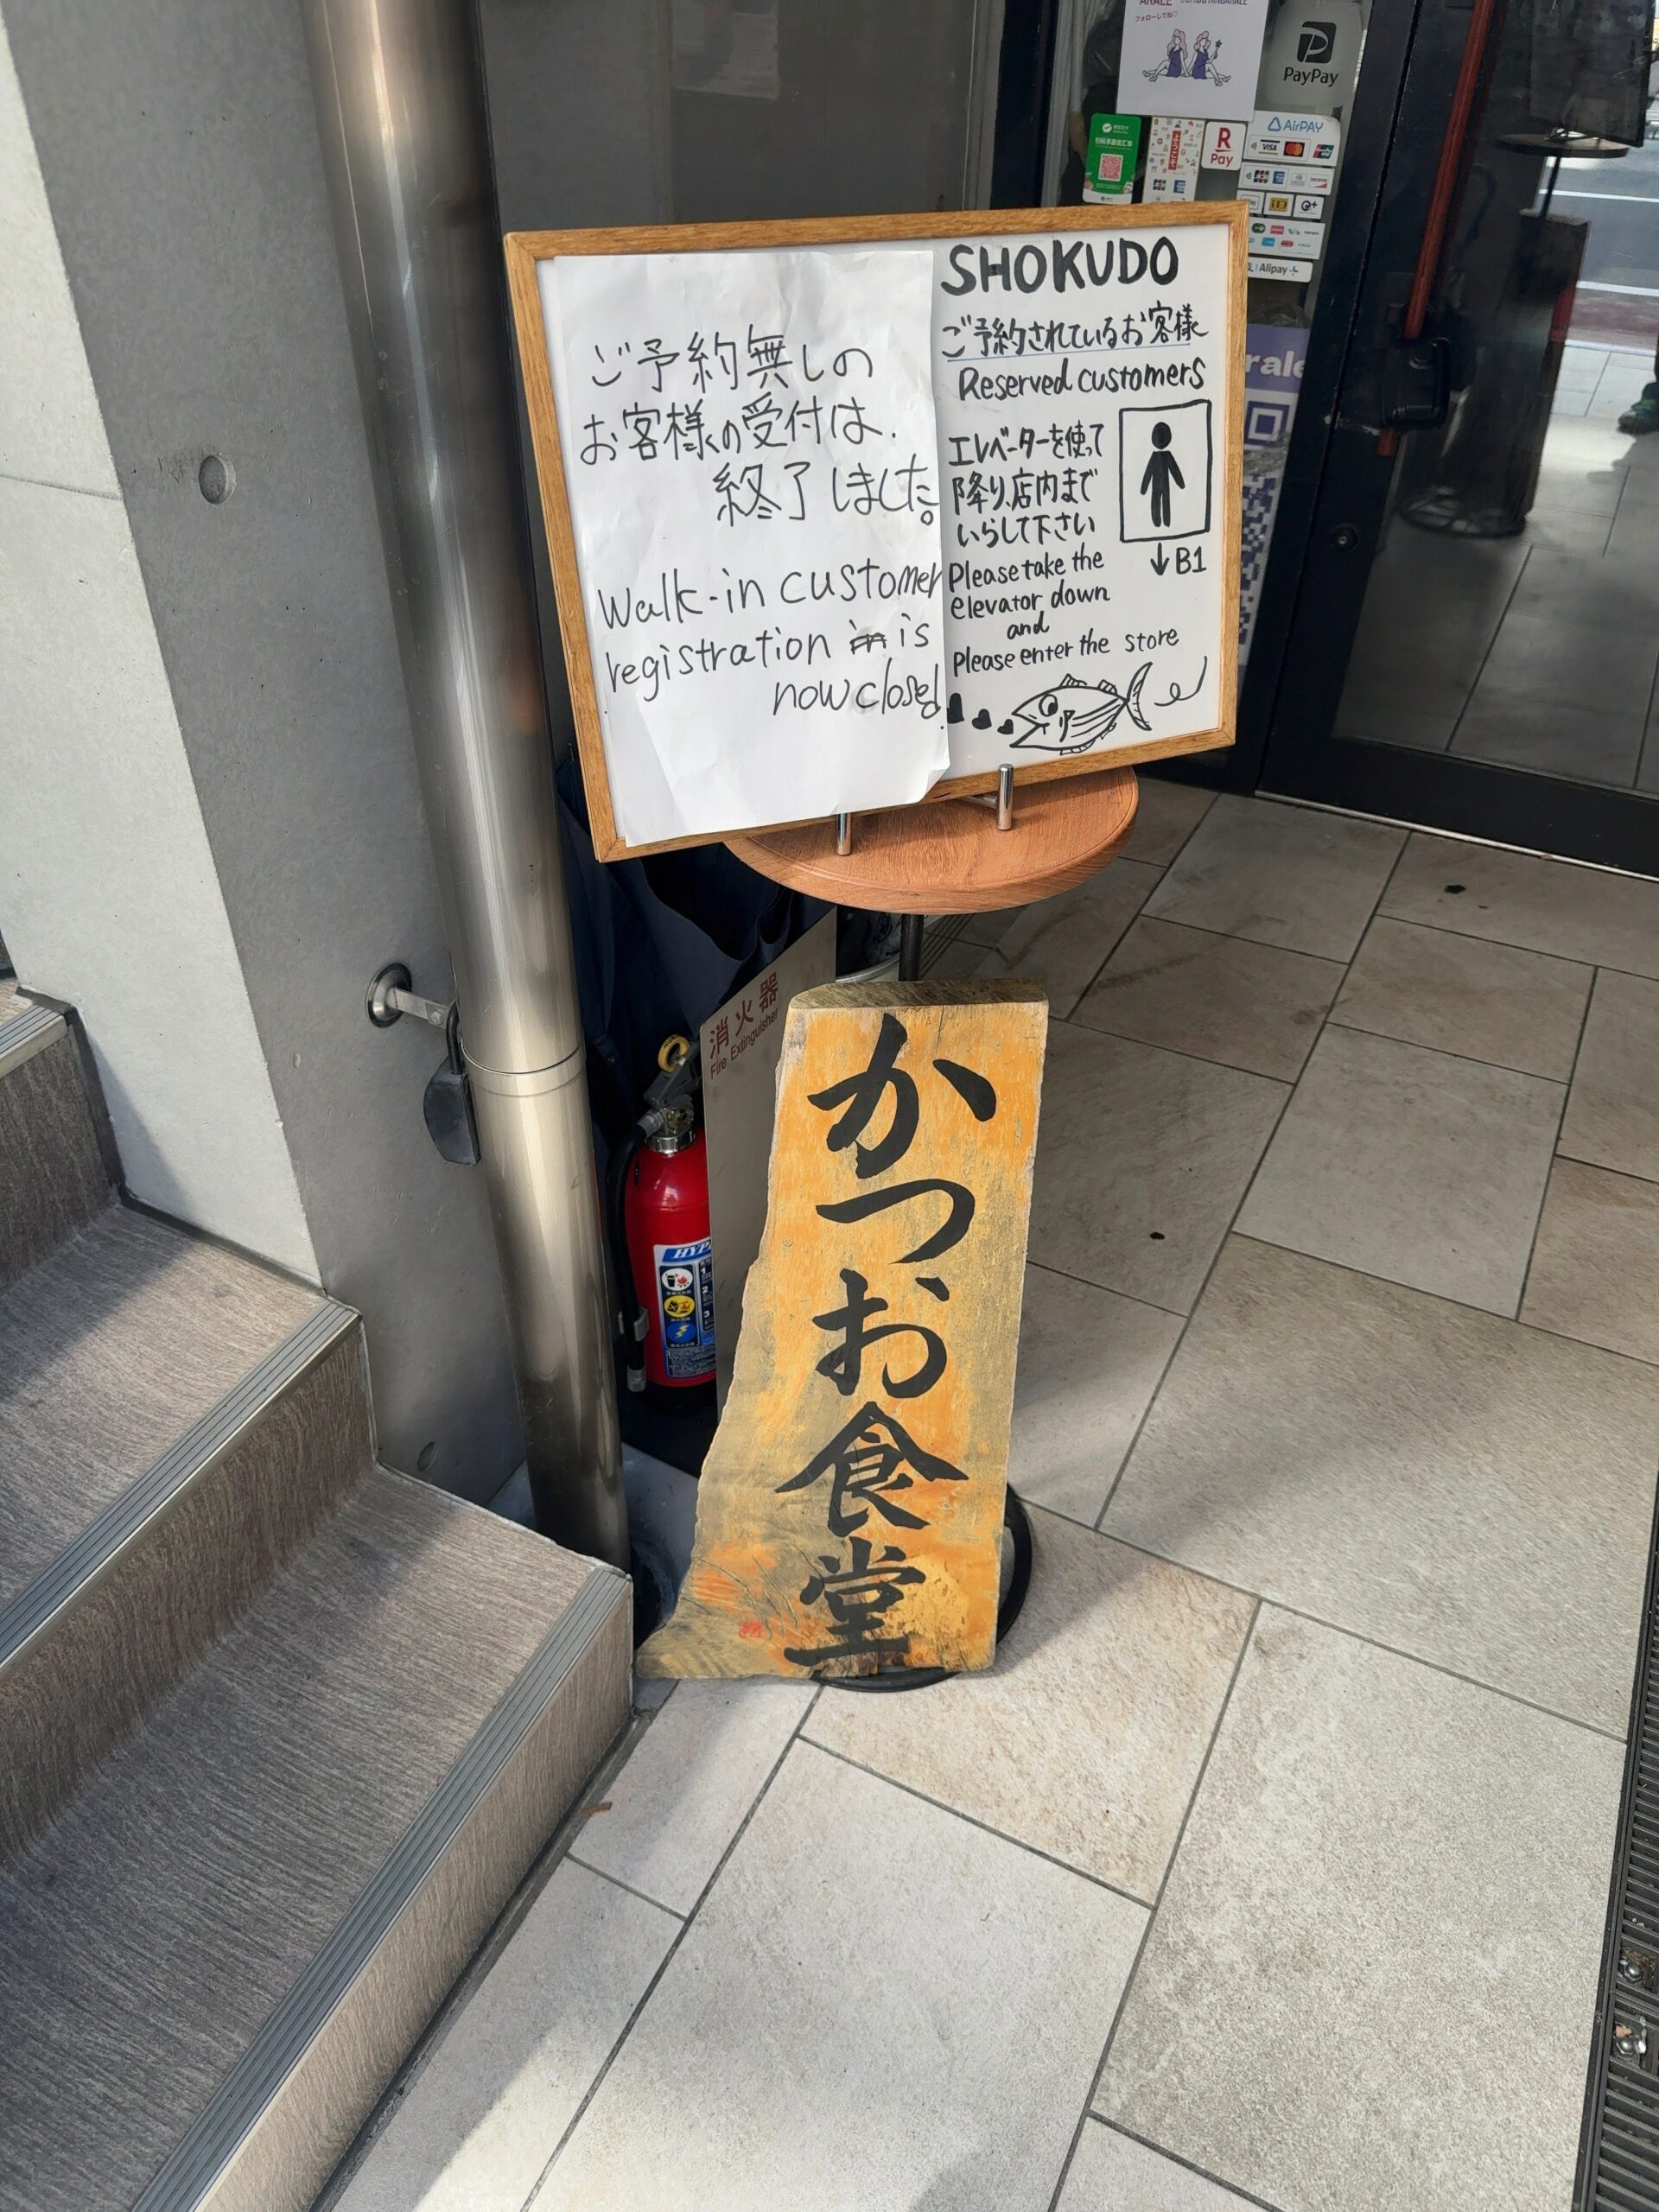 フォローしてね♡
PayPay
AirPAY
VISA
R
Pay
iD
Alipay
rale
SHOKUDO
ご予約されているお客様
Reserved customers
エレベーターを使って
降り、店内まで
いらして下さい
↓B1
Please take the
elevator down
and
Please enter the store
ご予約無しの
お客様の受付は、
終了しました。
Walk-in customer
registration in is
now closed.
消火器
Fire Extinguisher
HYP
1
2
3
かつお食堂